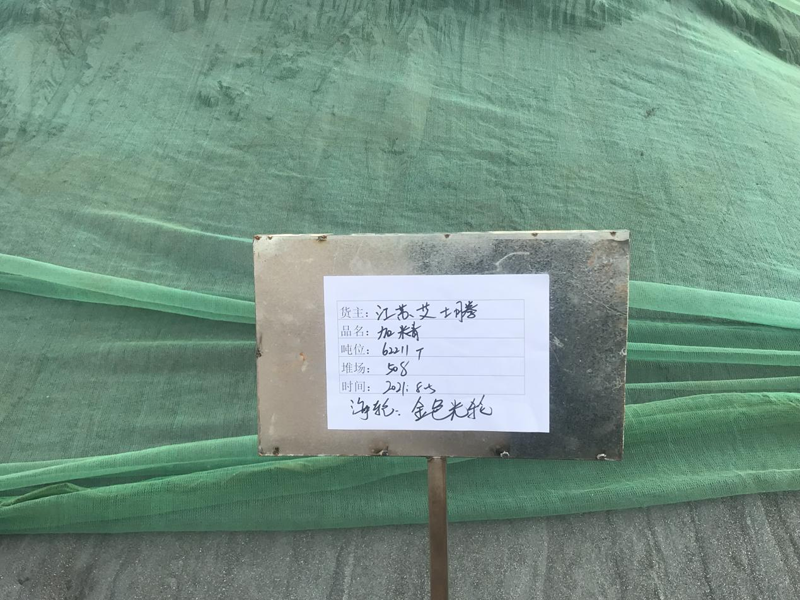 货主：江苏艾士腾
品名：加精
吨位：62211 T
堆场：508
时间：2021.8.5
海轮：金色米轮